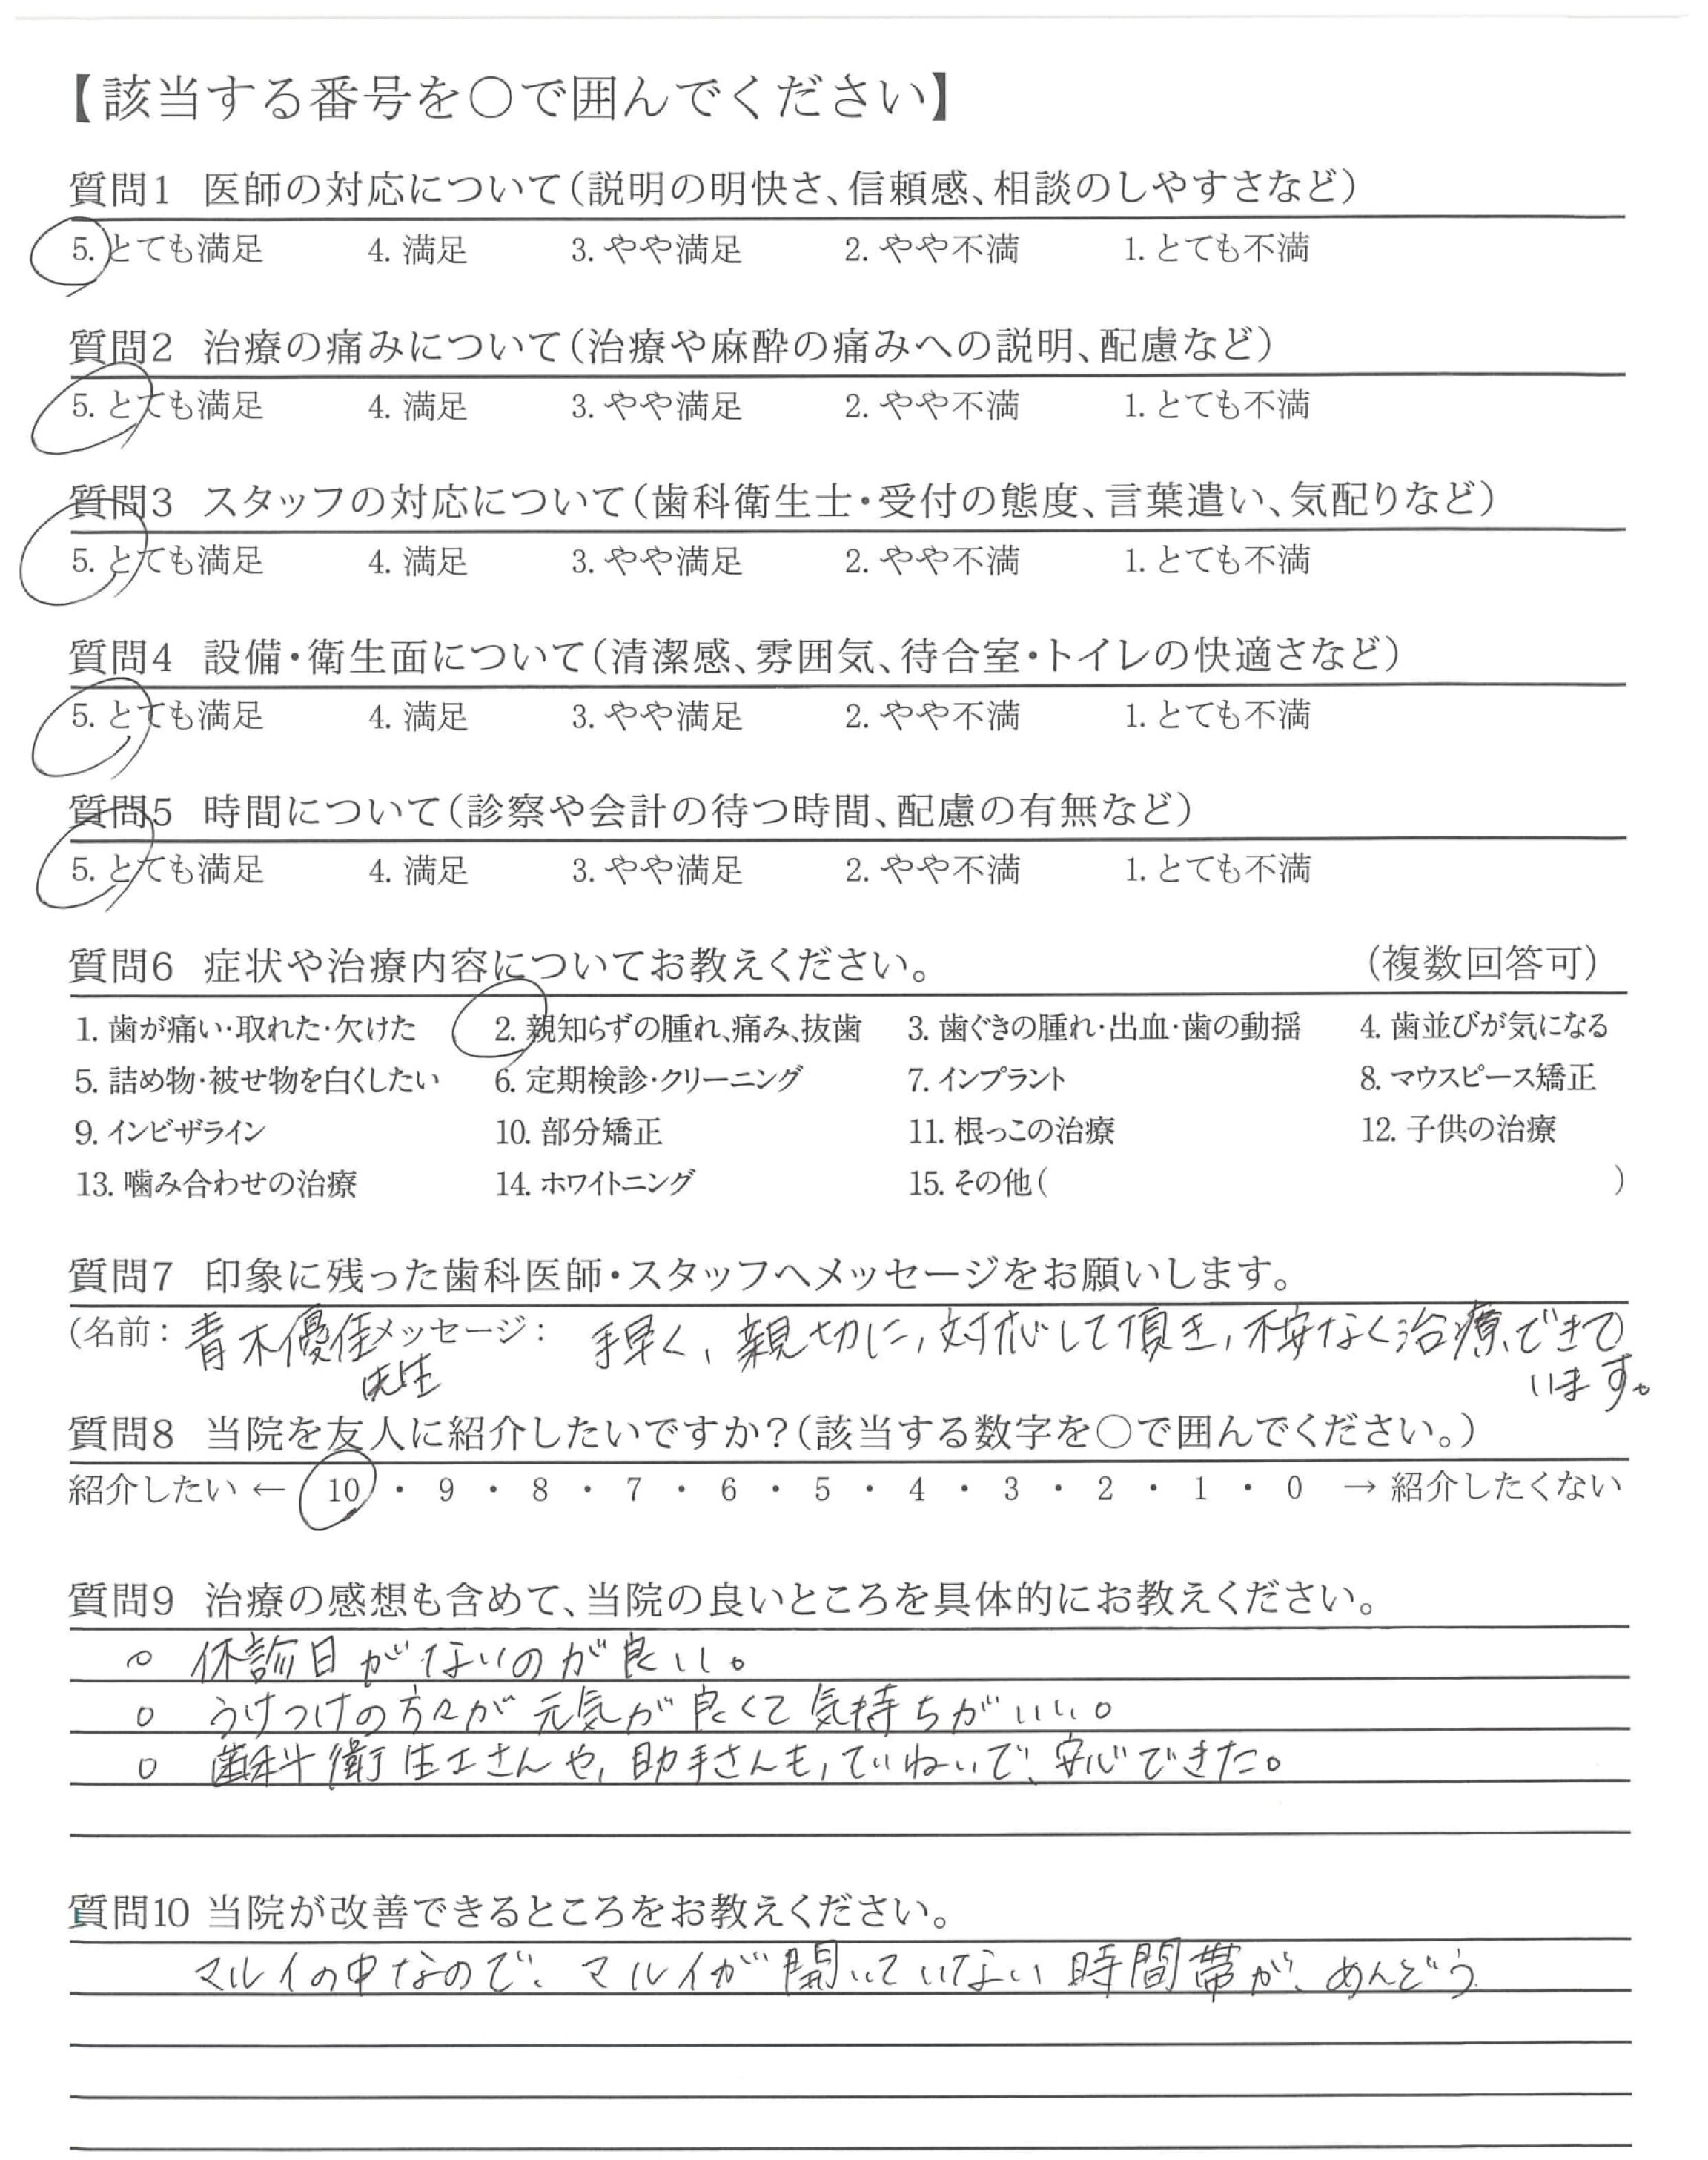 【該当する番号を○で囲んでください】
質問1 医師の対応について(説明の明快さ、信頼感、相談のしやすさなど)
5. とても満足 4. 満足 3. やや満足 2. やや不満 1. とても不満
質問2 治療の痛みについて(治療や麻酔の痛みへの説明、配慮など)
5. とても満足 4. 満足 3. やや満足 2. やや不満 1. とても不満
質問3 スタッフの対応について(歯科衛生士・受付の態度、言葉遣い、気配りなど)
5. とても満足 4. 満足 3. やや満足 2. やや不満 1. とても不満
質問4 設備・衛生面について(清潔感、雰囲気、待合室・トイレの快適さなど)
5. とても満足 4. 満足 3. やや満足 2. やや不満 1. とても不満
質問5 時間について(診察や会計の待つ時間、配慮の有無など)
5. とても満足 4. 満足 3. やや満足 2. やや不満 1. とても不満
質問6 症状や治療内容についてお教えください。 (複数回答可)
1. 歯が痛い・取れた・欠けた 2. 親知らずの腫れ、痛み、抜歯 3. 歯ぐきの腫れ・出血・歯の動揺 4. 歯並びが気になる
5. 詰め物・被せ物を白くしたい 6. 定期検診・クリーニング 7. インプラント 8. マウスピース矯正
9. インビザライン 10. 部分矯正 11. 根っこの治療 12. 子供の治療
13. 噛み合わせの治療 14. ホワイトニング 15. その他( )
質問7 印象に残った歯科医師・スタッフへメッセージをお願いします。
(名前: 青木優佳 メッセージ: 手早く、親切に、対応して頂き、不安なく治療できて
先生 います。
質問8 当院を友人に紹介したいですか?(該当する数字を○で囲んでください。)
紹介したい ← 10 ・ 9 ・ 8 ・ 7 ・ 6 ・ 5 ・ 4 ・ 3 ・ 2 ・ 1 ・ 0 → 紹介したくない
質問9 治療の感想も含めて、当院の良いところを具体的にお教えください。
○ 休診日がないのが良い。
○ うけつけの方々が元気が良くて気持ちがいい。
○ 歯科衛生士さんや、助手さんも、ていねいで、安心できた。
質問10 当院が改善できるところをお教えください。
マルイの中なので、マルイが開いていない時間帯が、めんどう